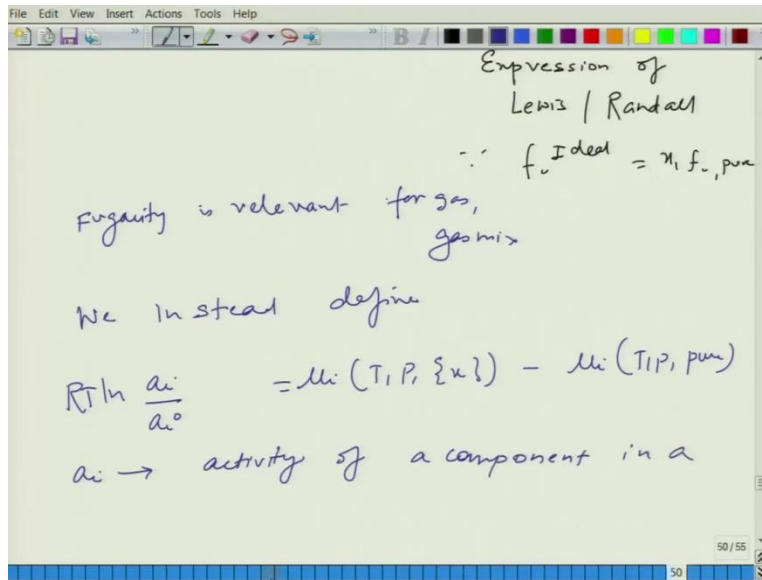 File Edit View Insert Actions Tools Help
Expression of
Lewis / Randall
∵ fᵢ Ideal = xᵢ fᵢ, pure
Fugacity is relevant for gas,
gas mix
We instead define
RT ln aᵢ/aᵢ° = μᵢ (T, P, {x}) - μᵢ (T, P, pure)
aᵢ → activity of a component in a
50/55
50